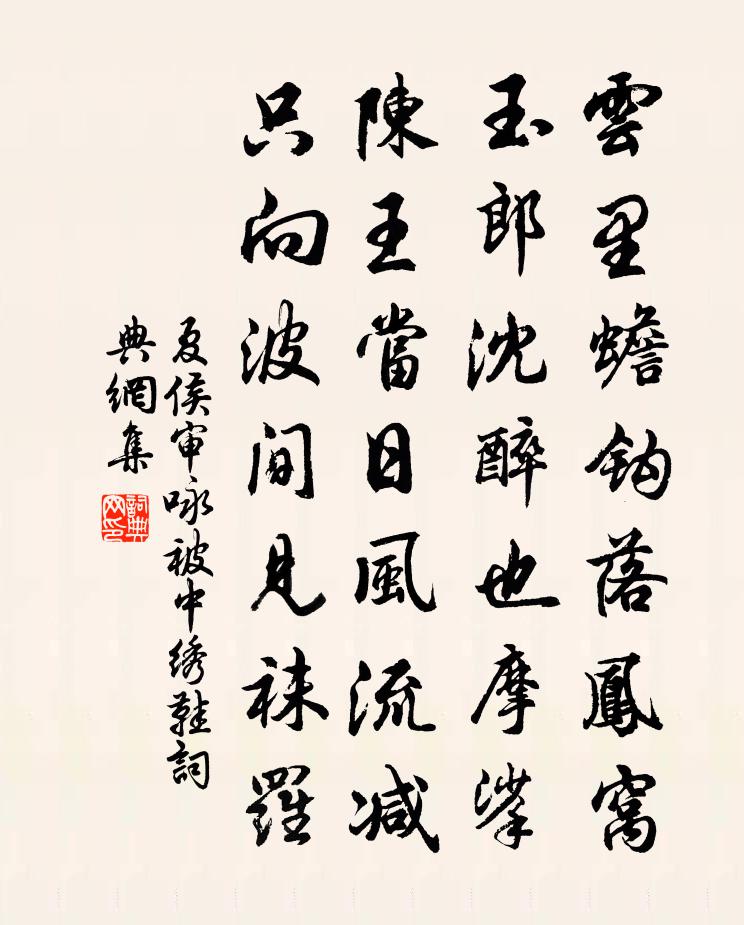 雲里蟾鈎落鳳窩
玉郎沈醉也摩挲
陳王當日風流减
只向波間見袜羅
夏侯审咏被中绣鞋詞
典網集
詞典
网印